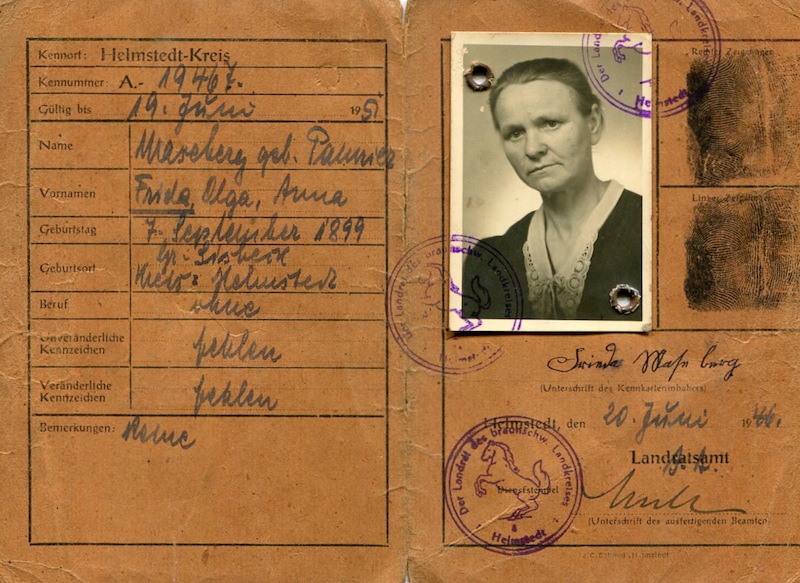 Kennort: Helmstedt-Kreis
Kennummer: A.- 19467.
Gültig bis 19. Juni 1951
Name Maseberg geb. Pannier
Vornamen Frida, Olga, Anna
Geburtstag 7. September 1899
Geburtsort Gr. Sisbeck
Kreis: Helmstedt
Beruf ohne
Unveränderliche
Kennzeichen fehlen
Veränderliche
Kennzeichen fehlen
Bemerkungen: Keine
Der Landrat
Helmstedt
Rechter Zeigefinger
Linker Zeigefinger
Der Landrat des braunschw. Landkreises
Helmstedt
Frieda Maseberg
(Unterschrift des Kennkarteninhabers)
Helmstedt, den 20. Juni 1946.
Landratsamt
Der Landrat des braunschw. Landkreises
8
Helmstedt
Dienststempel
(Unterschrift des ausfertigenden Beamten)
J. C. Schmidt, Helmstedt